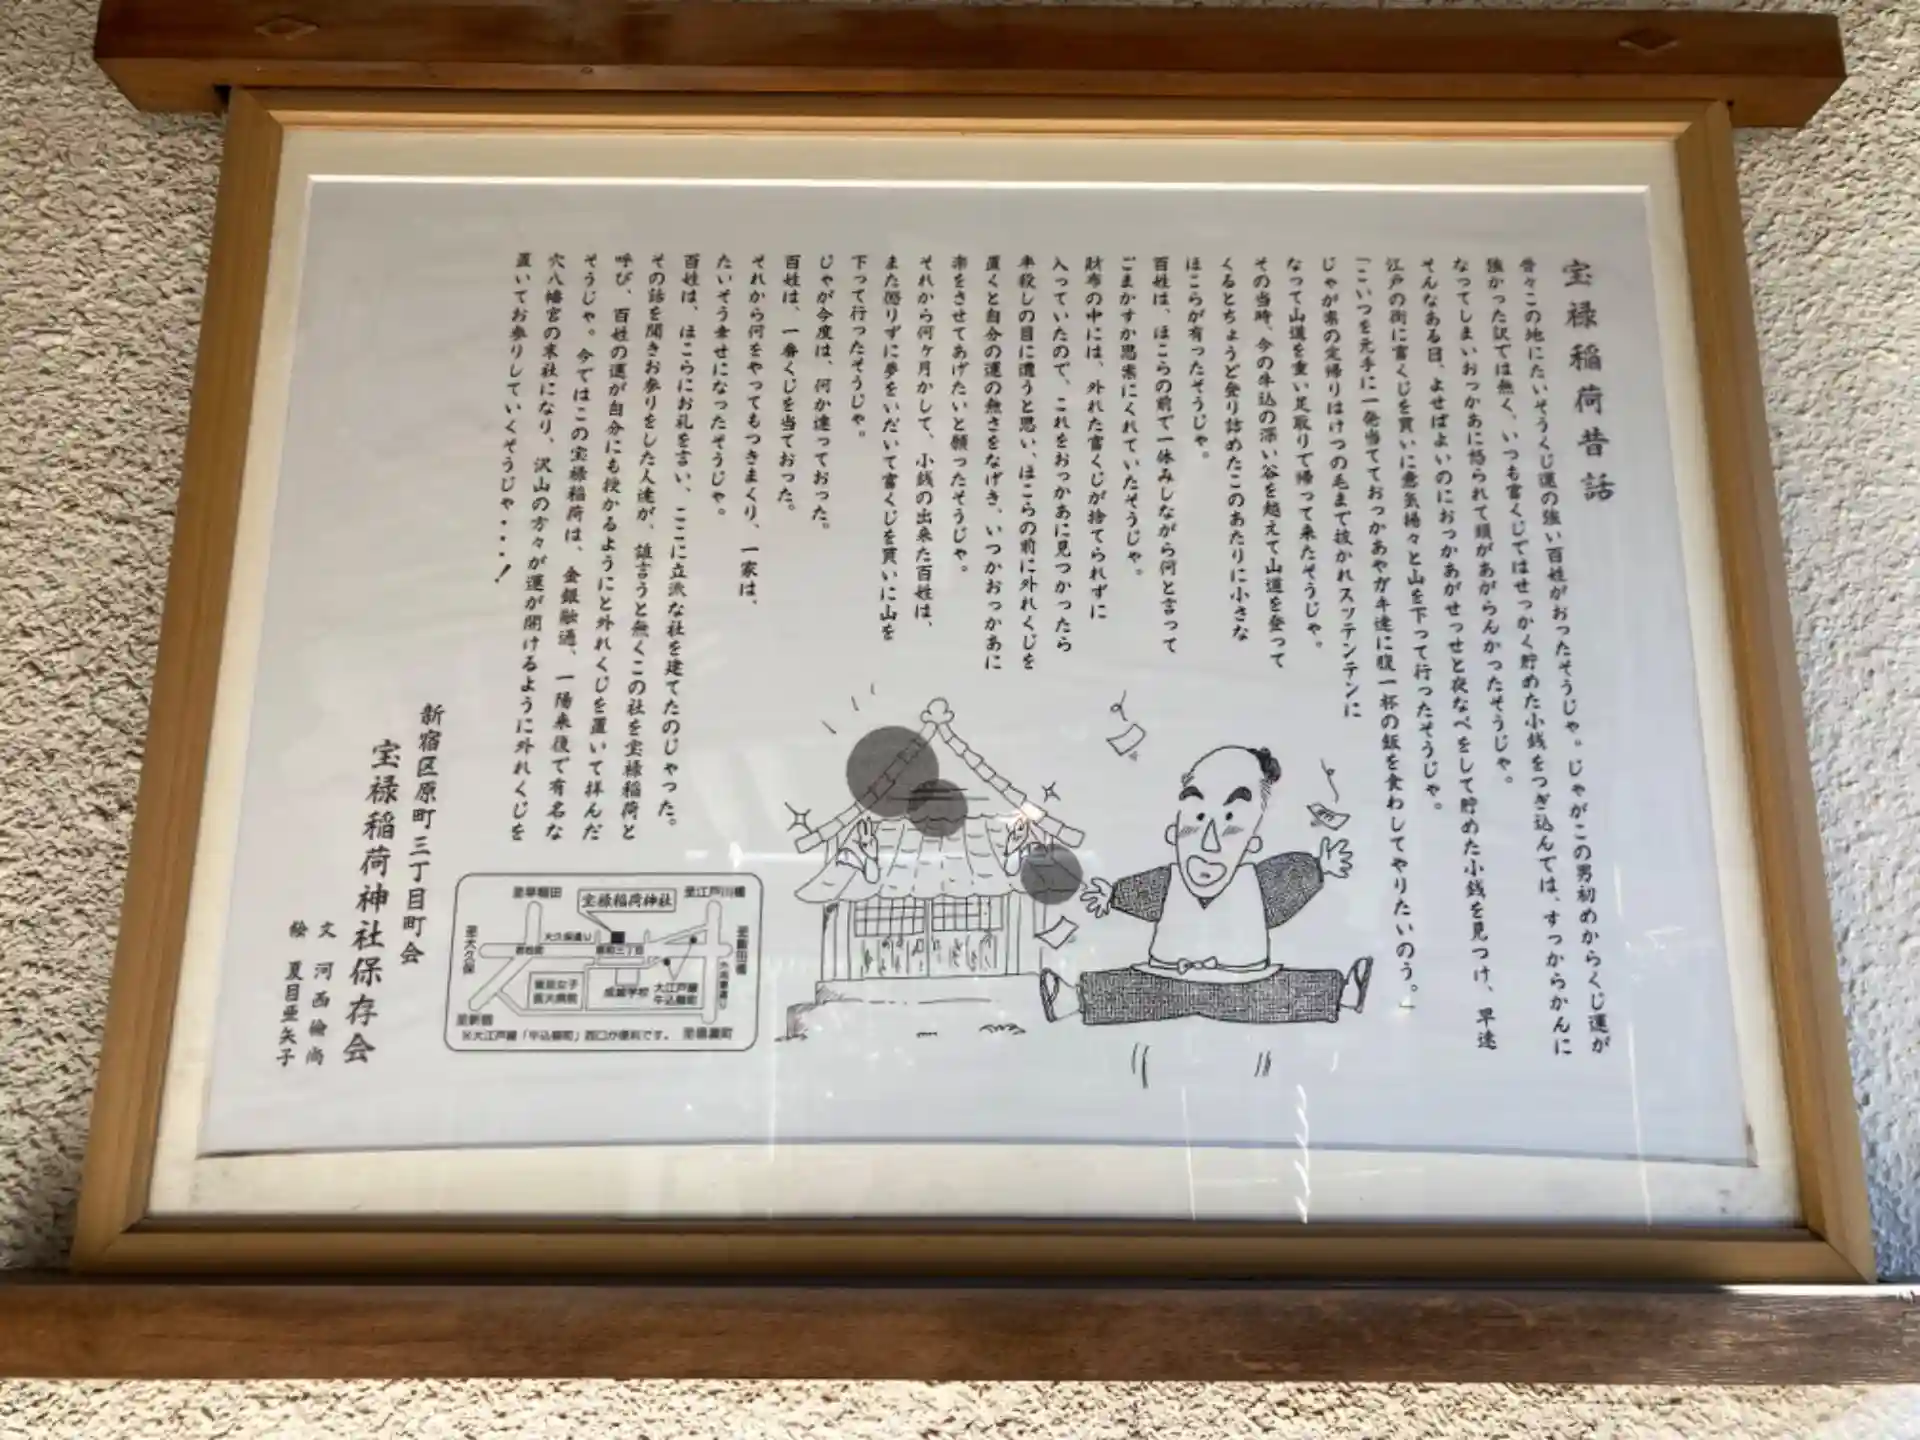 宝禄稲荷昔話
昔々この地にたいそうくじ運の強い百姓がおったそうじゃ。じゃがこの男初めからくじ運が
強かった訳では無く、いつも富くじではせっかく貯めた小銭をつぎ込んでは、すっからかんに
なってしまいおっかあに怒られて頭があがらんかったそうじゃ。
そんなある日、よせばよいのにおっかあがせっせと夜なべをして貯めた小銭を見つけ、早速
江戸の街に富くじを買いに意気揚々と山を下って行ったそうじゃ。
「こいつを元手に一発当てておっかあやガキ達に腹一杯の飯を食わしてやりたいのう。」
じゃが案の定帰りはけつの毛まで抜かれスッテンテンに
なって山道を重い足取りで帰って来たそうじゃ。
その当時、今の牛込の深い谷を越えて山道を登って
くるとちょうど登り詰めたこのあたりに小さな
ほこらが有ったそうじゃ。
百姓は、ほこらの前で一休みしながら何と言って
ごまかすか思案にくれていたそうじゃ。
財布の中には、外れた富くじが捨てられずに
入っていたので、これをおっかあに見つかったら
半殺しの目に遭うと思い、ほこらの前に外れくじを
置くと自分の運の無さをなげき、いつかおっかあに
楽をさせてあげたいと願ったそうじゃ。
それから何ヶ月かして、小銭の出来た百姓は、
また懲りずに夢をいだいて富くじを買いに山を
下って行ったそうじゃ。
じゃが今度は、何か違っておった。
百姓は、一番くじを当ておった。
それから何をやってもつきまくり、一家は、
たいそう幸せになったそうじゃ。
百姓は、ほこらにお礼を言い、ここに立派な社を建てたのじゃった。
その話を聞きお参りをした人達が、誰言うと無くこの社を宝禄稲荷と
呼び、百姓の運が自分にも授かるようにと外れくじを置いて拝んだ
そうじゃ。今ではこの宝禄稲荷は、金銀融通、一陽来復で有名な
穴八幡宮の末社になり、沢山の方々が運が開けるように外れくじを
置いてお参りしていくそうじゃ・・・・！
新宿区原町三丁目町会
宝禄稲荷神社保存会
文 河西倫尚
絵 夏目亜矢子
至早稲田
宝禄稲荷神社
至江戸川橋
至大久保
大久保通り
原町三丁目
至飯田橋
東京女子
医大病院
成城学校
大江戸線
牛込柳町
至新宿
※大江戸線「牛込柳町」西口が便利です。